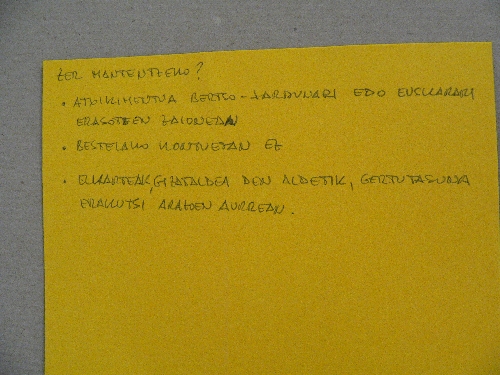 ZER MANTENTZEKO?
• ATXIKIMENTUA BERTSO-JARDUNARI EDO EUSKARARI
ERASOTZEN ZAIONEAN
• BESTELAKO KONTUETAN EZ
• ELKARTEAK, GIZATALDEA DEN ALDETIK, GERTUTASUNA
ERAKUTSI ARAZOEN AURREAN.